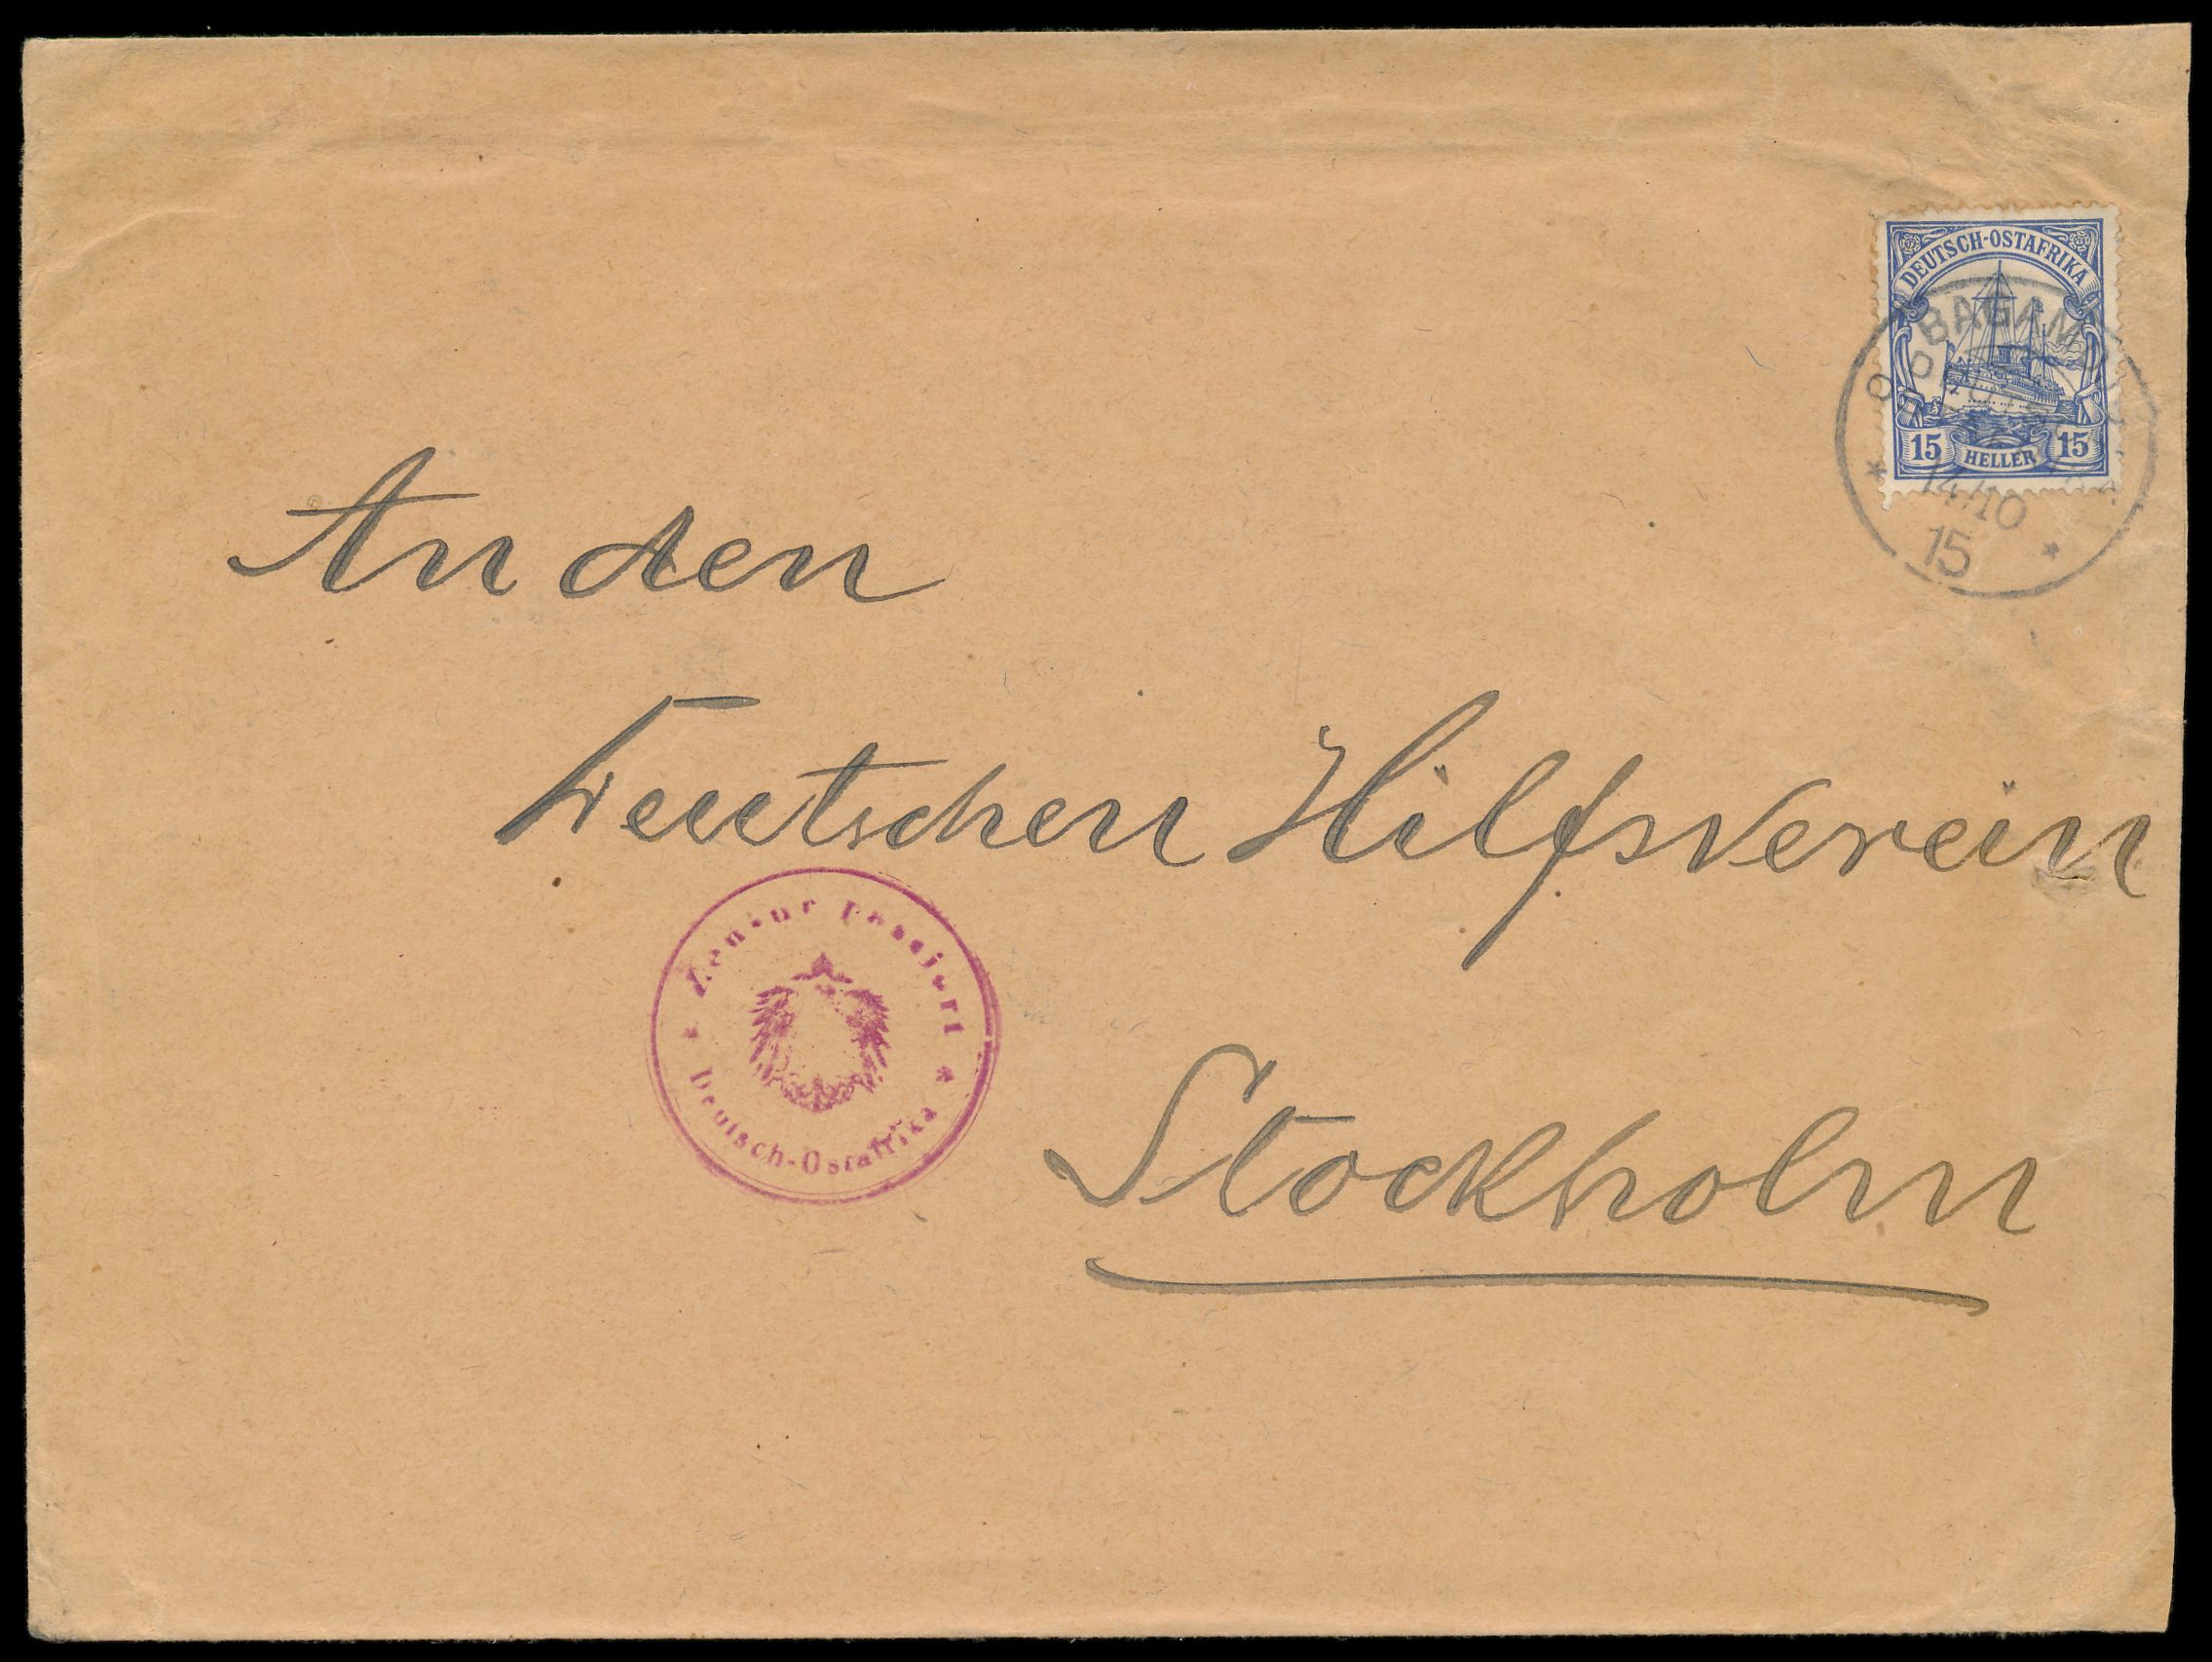 DEUTSCH-OSTAFRIKA
15 HELLER 15
BAGAMOYO
14/10
15
An den
Deutschen Hilfsverein
Zensur passiert
Deutsch-Ostafrika
Stockholm